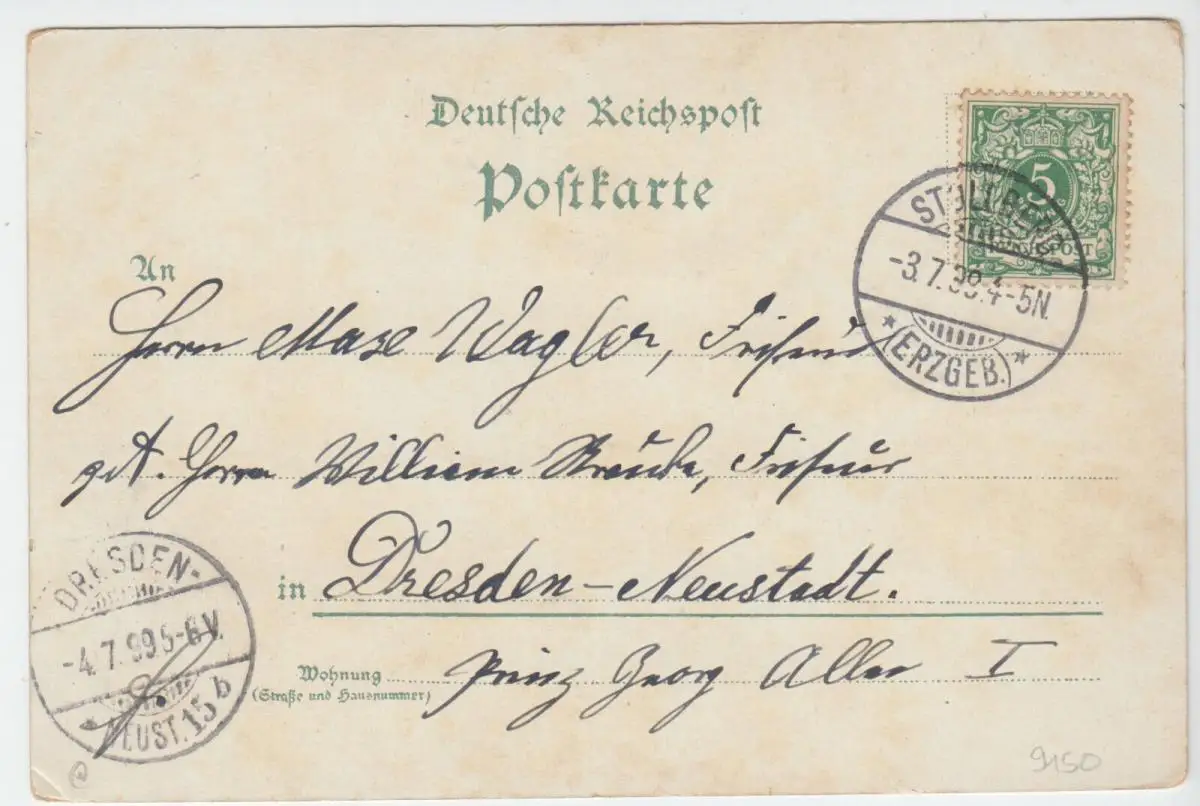 Deutsche Reichspost
Postkarte
5
REICHSPOST
STOLLBERG
-3.7.99.4-5N.
* (ERZGEB.) *
An
Herrn Max Wagler, Friseur
Herrn William Friseur
in Dresden-Neustadt.
Wohnung Prinz Georg Allee I
(Straße und Hausnummer)
DRESDEN-
-4.7.99 5-6V.
NEUST.15 b
9150